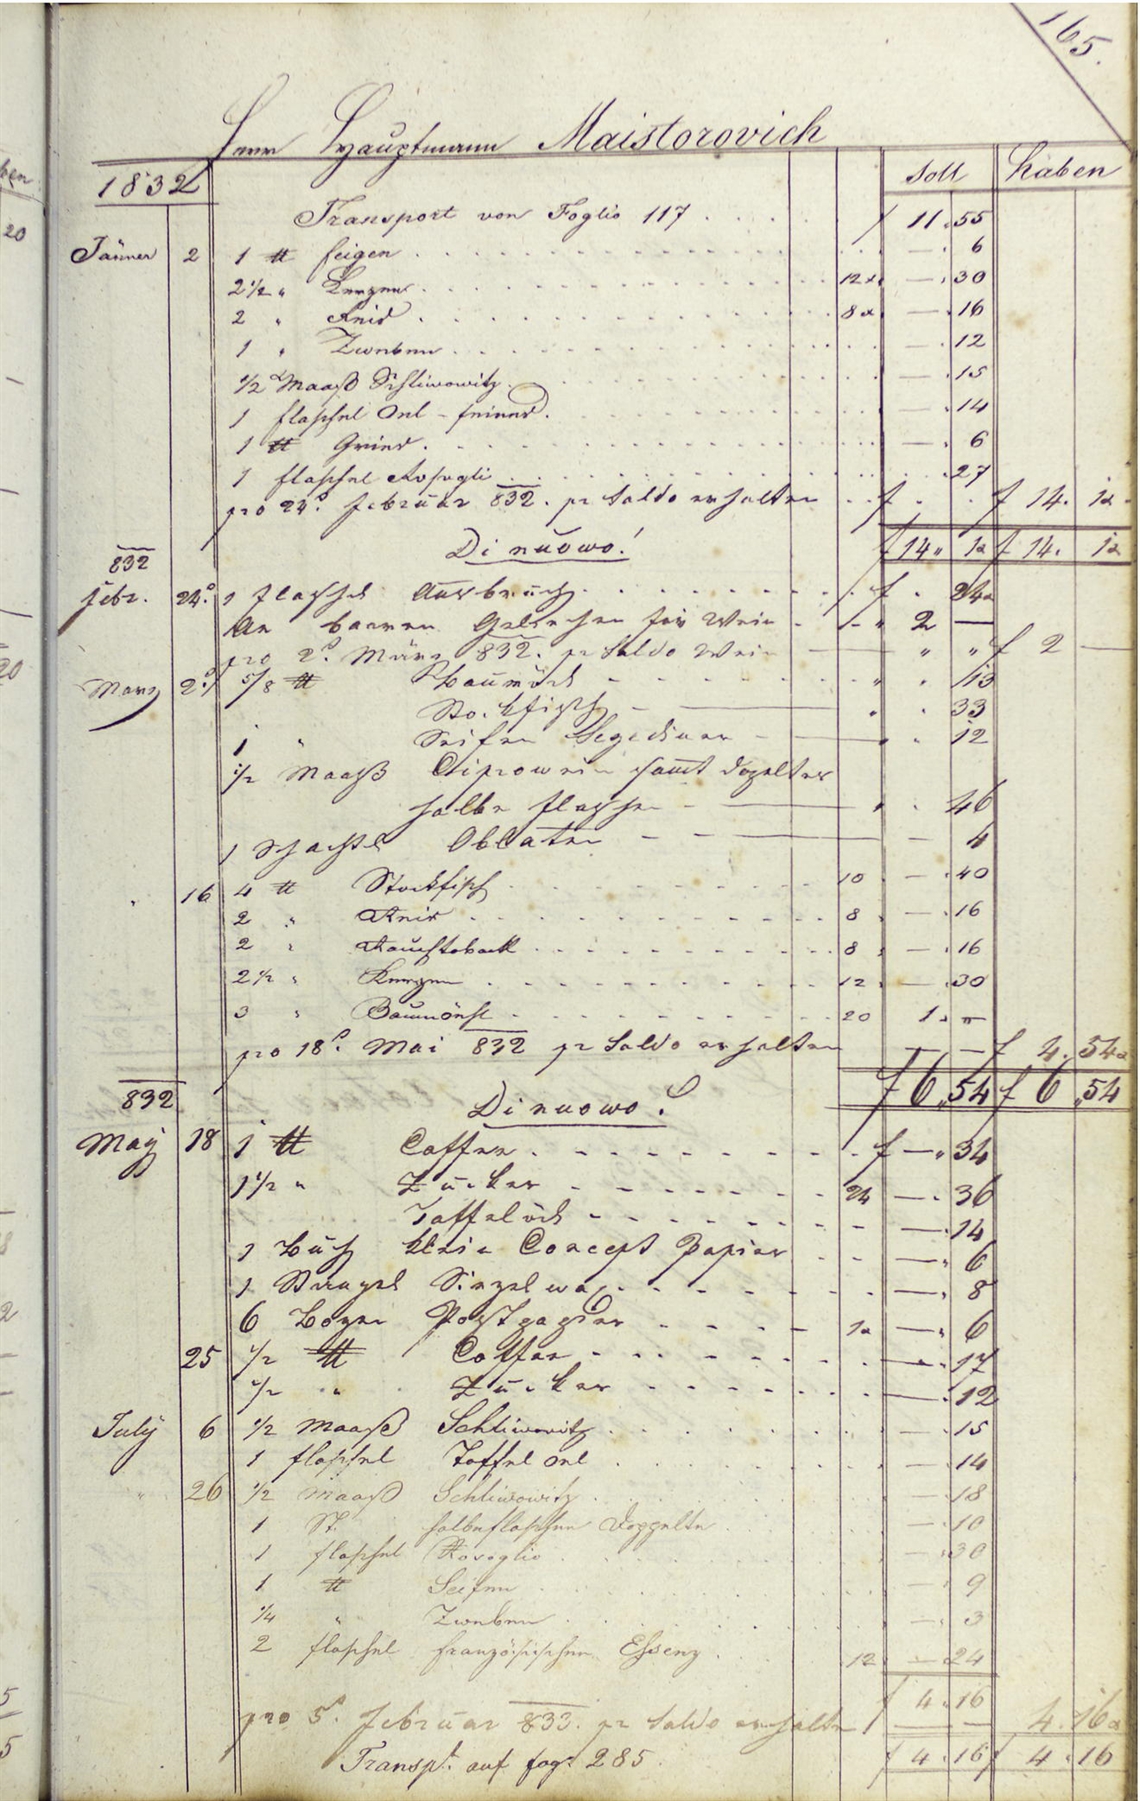 165.
Herr Hauptmann Maistorovich
1832 Soll haben
Transport von Foglio 117 . . . . f 11 . 55
Jänner 2 1 ℔ feigen . . . — . 6
2 1/2 " Kerzen . . . 12 x — . 30
2 " Anis . . . 8 x — . 16
1 " Zweben . . . — . 12
1/2 Maaß Schliwowitz . . . — . 15
1 flaschel Oel - feines . . . — . 14
1 ℔ Gries . . . — . 6
1 flaschel Rosogli . . . . 27
pro 24t. Februar 832. pr Saldo erhalten . . f . . f 14. 12
f 14 " 12 f 14. 12
Di nuowo!
832
febr. 24t. 1 flaschel Ausbruch . . . f . 24
An baaren Geliehen für Wein - - " 2 —
pro 2t. März 832. pr Saldo Wein — " " f 2 —
März 2t. 5/8 ℔ Baumöel - - - " . 13
Stockfisch — " . 33
1 " Seifen Segediner — " . 12
1/2 Maaß Ciprowein samt dopelter
halbe flaschen — " . 46
1 Schachtel Oblaten - - — — 4
" 16 4 ℔ Stockfisch . . . 10 — . 40
2 " Anis . . . 8 — . 16
2 " Rauchtoback . . . 8 — . 16
2 1/2 " Kerzen . . . 12 — . 30
3 " Baumöhl . . . 20 1 . —
pro 18t. Mai 832 pr Saldo erhalten — — f 4. 54
f 6 . 54 f 6 . 54
832
Di nuowo!
May 18 1 ℔ Coffee . . . f — " 34
1 1/2 " Zucker - - - 24 — . 36
Taffelöel - - - — . 14
1 Buch klein Concept Papier - - — . 6
1 Stangel Siegelwax . . . — . 8
6 Bogen Postpapier - - - 1x — " 6
25 1/2 ℔ Coffee - - - — . 17
1/2 " Zucker . . . — . 12
July 6 1/2 Maaß Schliwowitz . . . — . 15
1 flaschel Taffel Oel . . . — . 14
" 26 1/2 Maaß Schliwowitz . . . — . 18
1 St. halbeflaschen Doppelte . . . — . 10
1 flaschel Rosoglio . . . — . 30
1 ℔ Seifen . . . — . 9
1/4 " Zweben . . . — . 3
2 flaschel französischen Essenz . . . 12 — . 24
f 4 . 16
pro 5t. Februar 833. pr Saldo erhalten f — — 4 . 16
Transpt. auf fog: 285. f 4 . 16 f 4 . 16